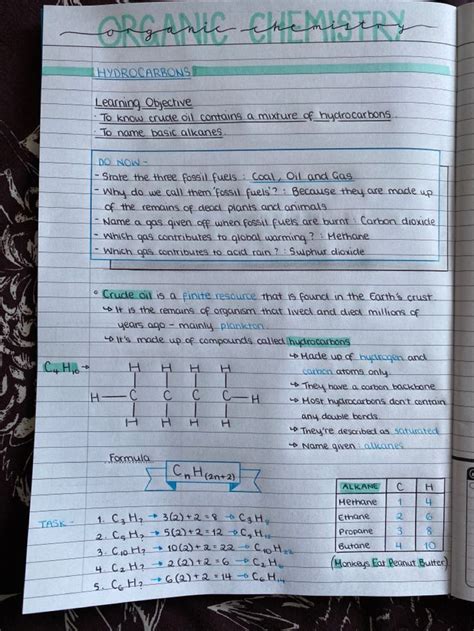 ORGANIC CHEMISTRY
organic chemistry
HYDROCARBONS
Learning Objective
· To know crude oil contains a mixture of hydrocarbons.
· To name basic alkanes.
DO NOW -
- State the three fossil fuels : Coal, Oil and Gas
- Why do we call them 'fossil fuels'? : Because they are made up
of the remains of dead plants and animals
- Name a gas given off when fossil fuels are burnt : Carbon dioxide
- Which gas contributes to global warming? : Methane
- Which gas contributes to acid rain? : Sulphur dioxide
Crude oil is a finite resource that is found in the Earth's crust.
↳ It is the remains of organism that lived and died millions of
years ago - mainly plankton.
↳ It's made up of compounds called hydrocarbons
↳ Made up of hydrogen and
carbon atoms only.
↳ They have a carbon backbone
↳ Most hydrocarbons don't contain
any double bonds.
↳ They're described as saturated
↳ Name given : alkanes
C4 H10 →
H H H H
H — C C C C — H
H H H H
Formula
CnH(2n+2)
ALKANE C H
Methane 1 4
Ethane 2 6
Propane 3 8
Butane 4 10
(Monkeys Eat Peanut Butter)
TASK -
1. C3 H? → 3(2)+2 = 8 → C3 H
2. C5 H? → 5(2)+2 = 12 → H
3. C10 H? → 10(2)+2 = 22 → C10 H22
4. C2 H? → 2(2)+2 = 6 → C2 H
5. C6 H? → 6(2)+2 = 14 → C6 H14